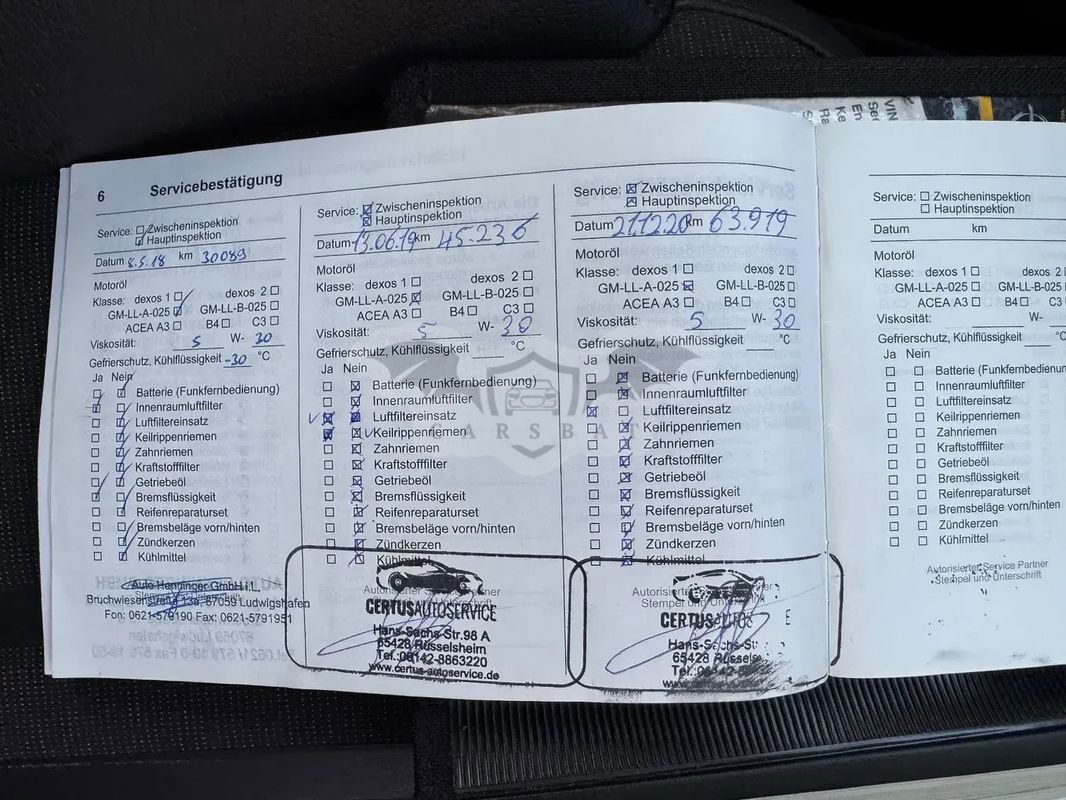 6 Servicebestätigung
Service: Zwischeninspektion
Hauptinspektion
Datum 8.5.18 km 30089
Motoröl
Klasse: dexos 1 dexos 2
GM-LL-A-025 GM-LL-B-025
ACEA A3 B4 C3
Viskosität: 5 W- 30
Gefrierschutz, Kühlflüssigkeit -30 °C
Ja Nein
Batterie (Funkfernbedienung)
Innenraumluftfilter
Luftfiltereinsatz
Keilrippenriemen
Zahnriemen
Kraftstofffilter
Getriebeöl
Bremsflüssigkeit
Reifenreparaturset
Bremsbeläge vorn/hinten
Zündkerzen
Kühlmittel
Auto Henninger GmbH i.L.
Bruchwiesenstraße 67059 Ludwigshafen
Fon: 0621-579190 Fax: 0621-5791951
Service: Zwischeninspektion
Hauptinspektion
Datum 13.06.19 km 45.236
Motoröl
Klasse: dexos 1 dexos 2
GM-LL-A-025 GM-LL-B-025
ACEA A3 B4 C3
Viskosität: 5 W- 30
Gefrierschutz, Kühlflüssigkeit °C
Ja Nein
Batterie (Funkfernbedienung)
Innenraumluftfilter
Luftfiltereinsatz
Keilrippenriemen
Zahnriemen
Kraftstofffilter
Getriebeöl
Bremsflüssigkeit
Reifenreparaturset
Bremsbeläge vorn/hinten
Zündkerzen
Kühlmittel
CERTUSAUTOSERVICE
Hans-Sachs-Str.98 A
65428 Rüsselsheim
Tel.:06142-8863220
www.certus-autoservice.de
Service: Zwischeninspektion
Hauptinspektion
Datum 21.12.20 km 63.919
Motoröl
Klasse: dexos 1 dexos 2
GM-LL-A-025 GM-LL-B-025
ACEA A3 B4 C3
Viskosität: 5 W- 30
Gefrierschutz, Kühlflüssigkeit °C
Ja Nein
Batterie (Funkfernbedienung)
Innenraumluftfilter
Luftfiltereinsatz
Keilrippenriemen
Zahnriemen
Kraftstofffilter
Getriebeöl
Bremsflüssigkeit
Reifenreparaturset
Bremsbeläge vorn/hinten
Zündkerzen
Kühlmittel
Stempel und Unterschrift
65428
Service: Zwischeninspektion
Hauptinspektion
Datum km
Motoröl
Klasse: dexos 1
GM-LL-A-025
ACEA A3
Viskosität:
Gefrierschutz, Kühlflüssigkeit
Ja Nein
Batterie (Funkfernbedienung)
Innenraumluftfilter
Luftfiltereinsatz
Keilrippenriemen
Zahnriemen
Kraftstofffilter
Getriebeöl
Bremsflüssigkeit
Reifenreparaturset
Bremsbeläge vorn/hinten
Zündkerzen
Kühlmittel
Autorisierter Service Partner
Stempel und Unterschrift
CARSBAT